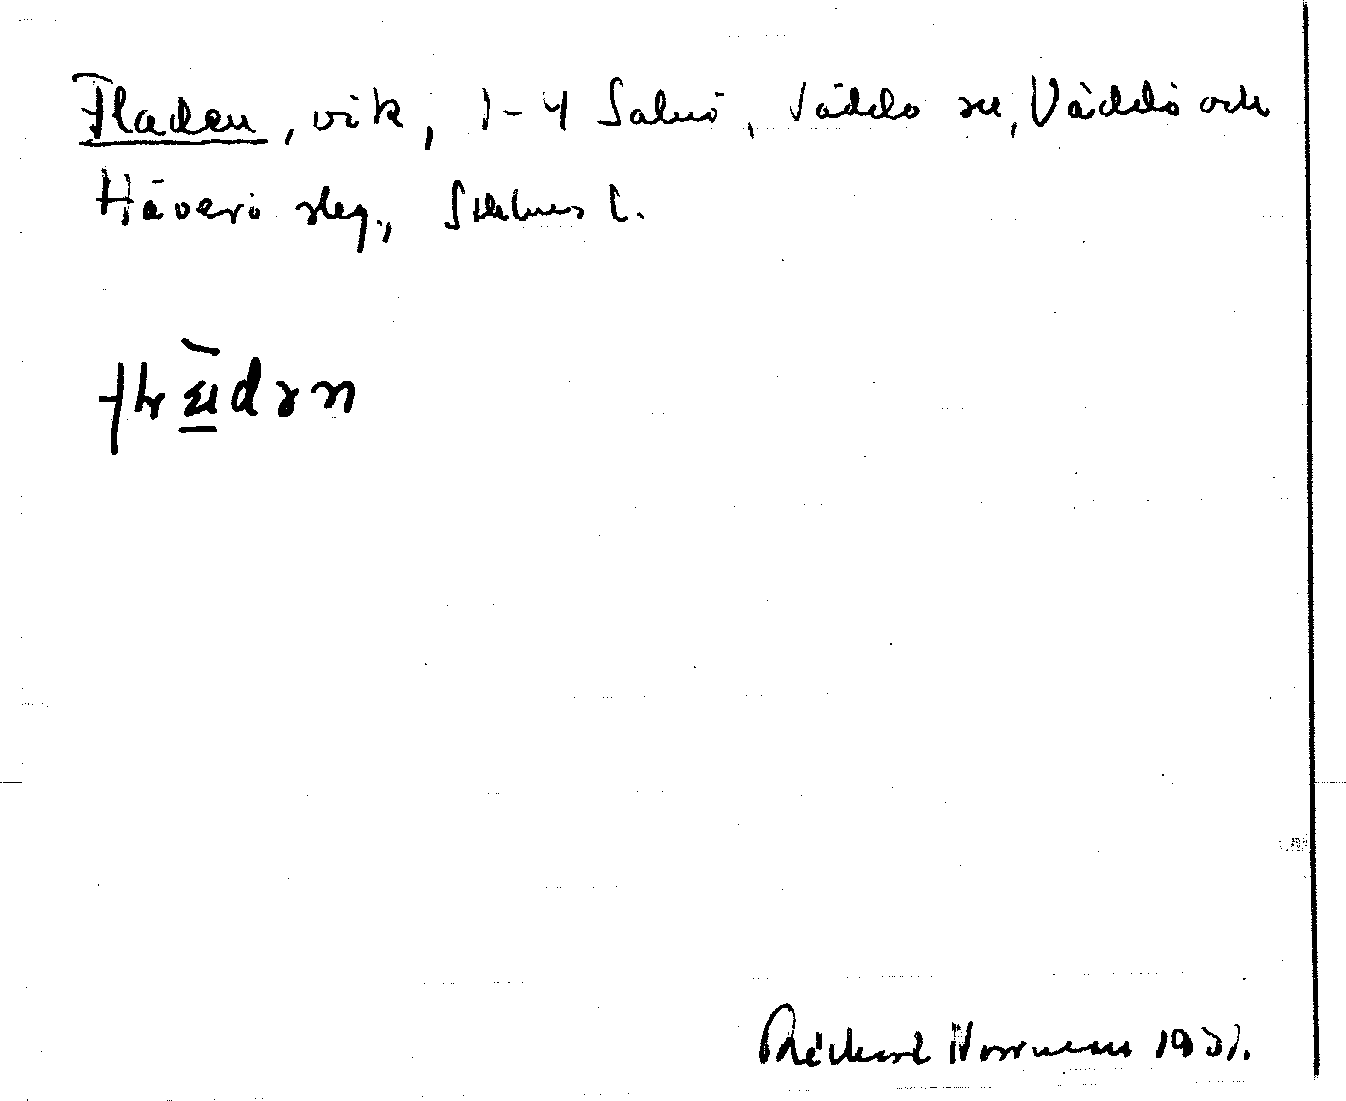 Fladen, vik, 1-4 Salnö, Väddö sn, Väddö och
Häverö skg., Sthlms l.
Rickard Norrman 1931.